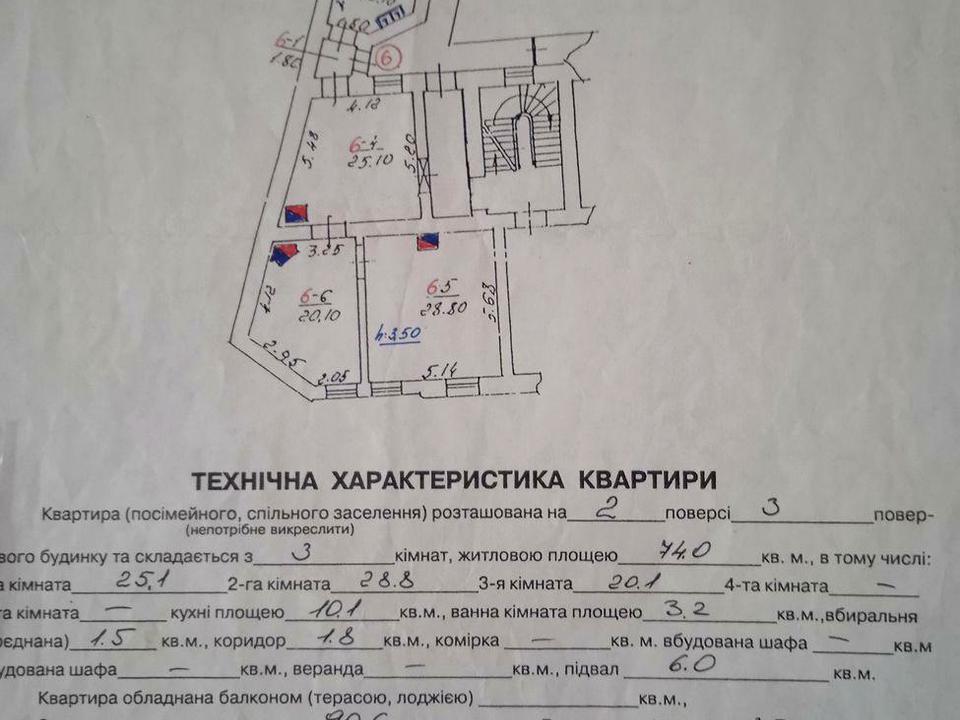 0.80
6-1
1.80
6
4.12
5.48
6-4
25.10
5.20
3.25
4.12
6-6
20,10
6 5
28.80
5.68
h:3,50
2.95
2.05
5.14
ТЕХНІЧНА ХАРАКТЕРИСТИКА КВАРТИРИ
Квартира (посімейного, спільного заселення) розташована на 2 поверсі 3 повер-
(непотрібне викреслити)
вого будинку та складається з 3 кімнат, житловою площею 74.0 кв. м., в тому числі:
а кімната 25,1 2-га кімната 28.8 3-я кімната 20.1 4-та кімната —
та кімната — кухні площею 10.1 кв.м., ванна кімната площею 3.2 кв.м.,вбиральня
єднана) 1.5 кв.м., коридор 1.8 кв.м., комірка — кв. м. вбудована шафа — кв.м
удована шафа — кв.м., веранда — кв.м., підвал 6.0 кв.м.
Квартира обладнана балконом (терасою, лоджією) кв.м.,